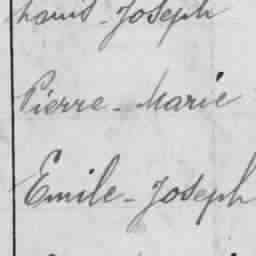 Louis-Joseph
Pierre-Marie
Emile-Joseph